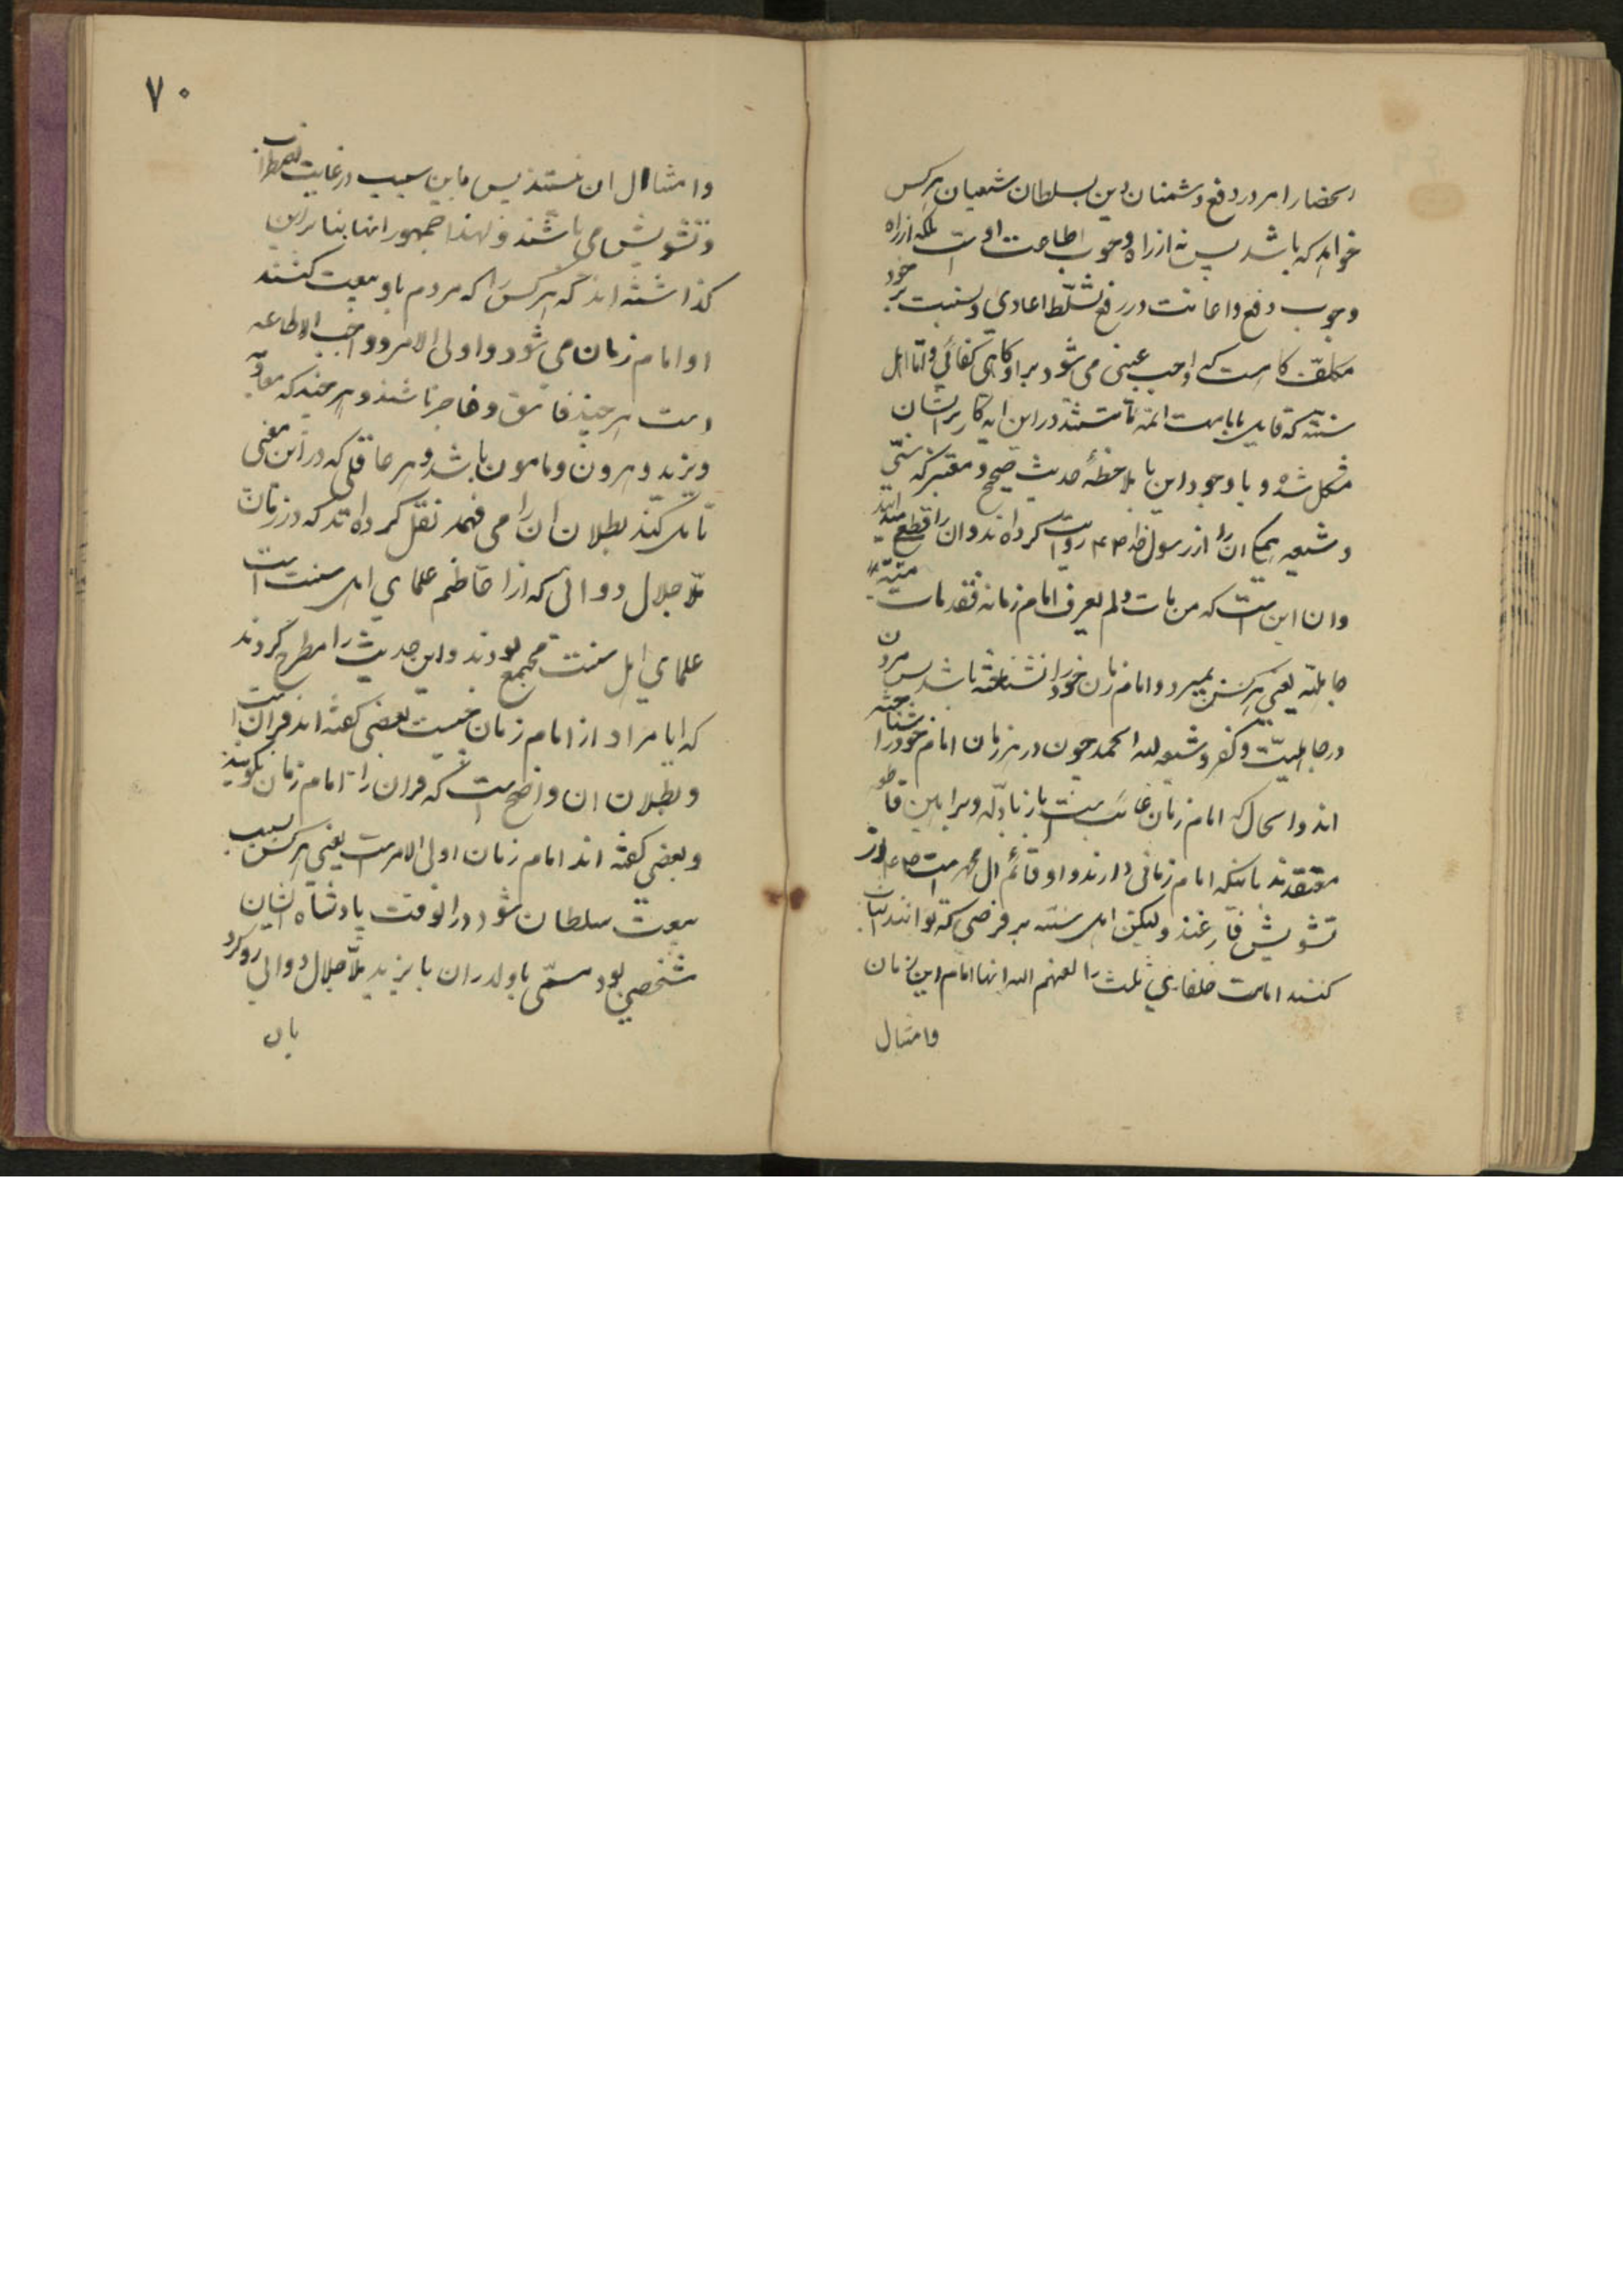 استحضار امر در دفع دشمنان دین سلطان شیعیان هرکس
خواهد که باشد پس نه از راه وجوب اطاعت اوست بلکه از راه
وجوب دفع و اعانت در رفع تسلّط اعادی و نسبت بهر خود
مکلّف کاهست که واجب عینی می شود بر او و کاهی کفائی و امّا اهل
سنّت که قایل بامامت ائمّه ما نیستند در این ایه کار بر ایشان
مشکل شده و با وجود این با ملاحظهٔ حدیث صحیح و معتبر که سنّی
و شیعه همکی آن را از رسول خدا روایت کرده اند و ان را قطعی میدانند
و ان این است که من مات و لم یعرف امام زمانه فقد مات میتة
جاهلیّه یعنی هرکس بمیرد و امام زمان خود را نشناخته باشد پس مردن
در جاهلیّت و کفر و شیعه لله الحمد چون در هر زمان امام خود را شناخته
اند و الحال که امام زمان غایب است باز بادلّه و براهین قاطعه
معتقدند باینکه امام زمانی دارند و او قائم ال محمد است از
تشویش فارغند ولیکن اهل سنّت بر فرضی که توانند اثبات
کنند امامت خلفای ثلث را لعنهم الله انها امام این زمان
وامثال
۷۰
وامثال ان نیستند پس باین سبب در غایت اضطراب
و تشویش می باشند و لهذا جمهور انها بنا بر این
کذاشته اند که هرکس را که مردم باو بیعت کنند
او امام زمان می شود و اولی الامر و واجب الاطاعه
است هر چند فاسق و فاجر باشند و هر چند که معاویه
و یزید و هرون و مامون باشد و هر عاقلی که در این معنی
تامل کند بطلان ان را می فهمد نقل کرده اند که در زمان
ملّا جلال دوانی که از اعاظم علمای اهل سنت است
علمای اهل سنت مجتمع بودند و این حدیث را مطرح کردند
که ایا مراد از امام زمان چیست بعضی کفته اند قران است
و بطلان ان واضح است که قران را امام زمان نکویند
و بعضی کفته اند امام زمان اولی الامر است یعنی هرکس بسبب
بیعت سلطان شود در انوقت پادشاه ایشان
شخصی بود مسمّی باولدران بایزید ملّا جلال دوانی رو کرد
بان